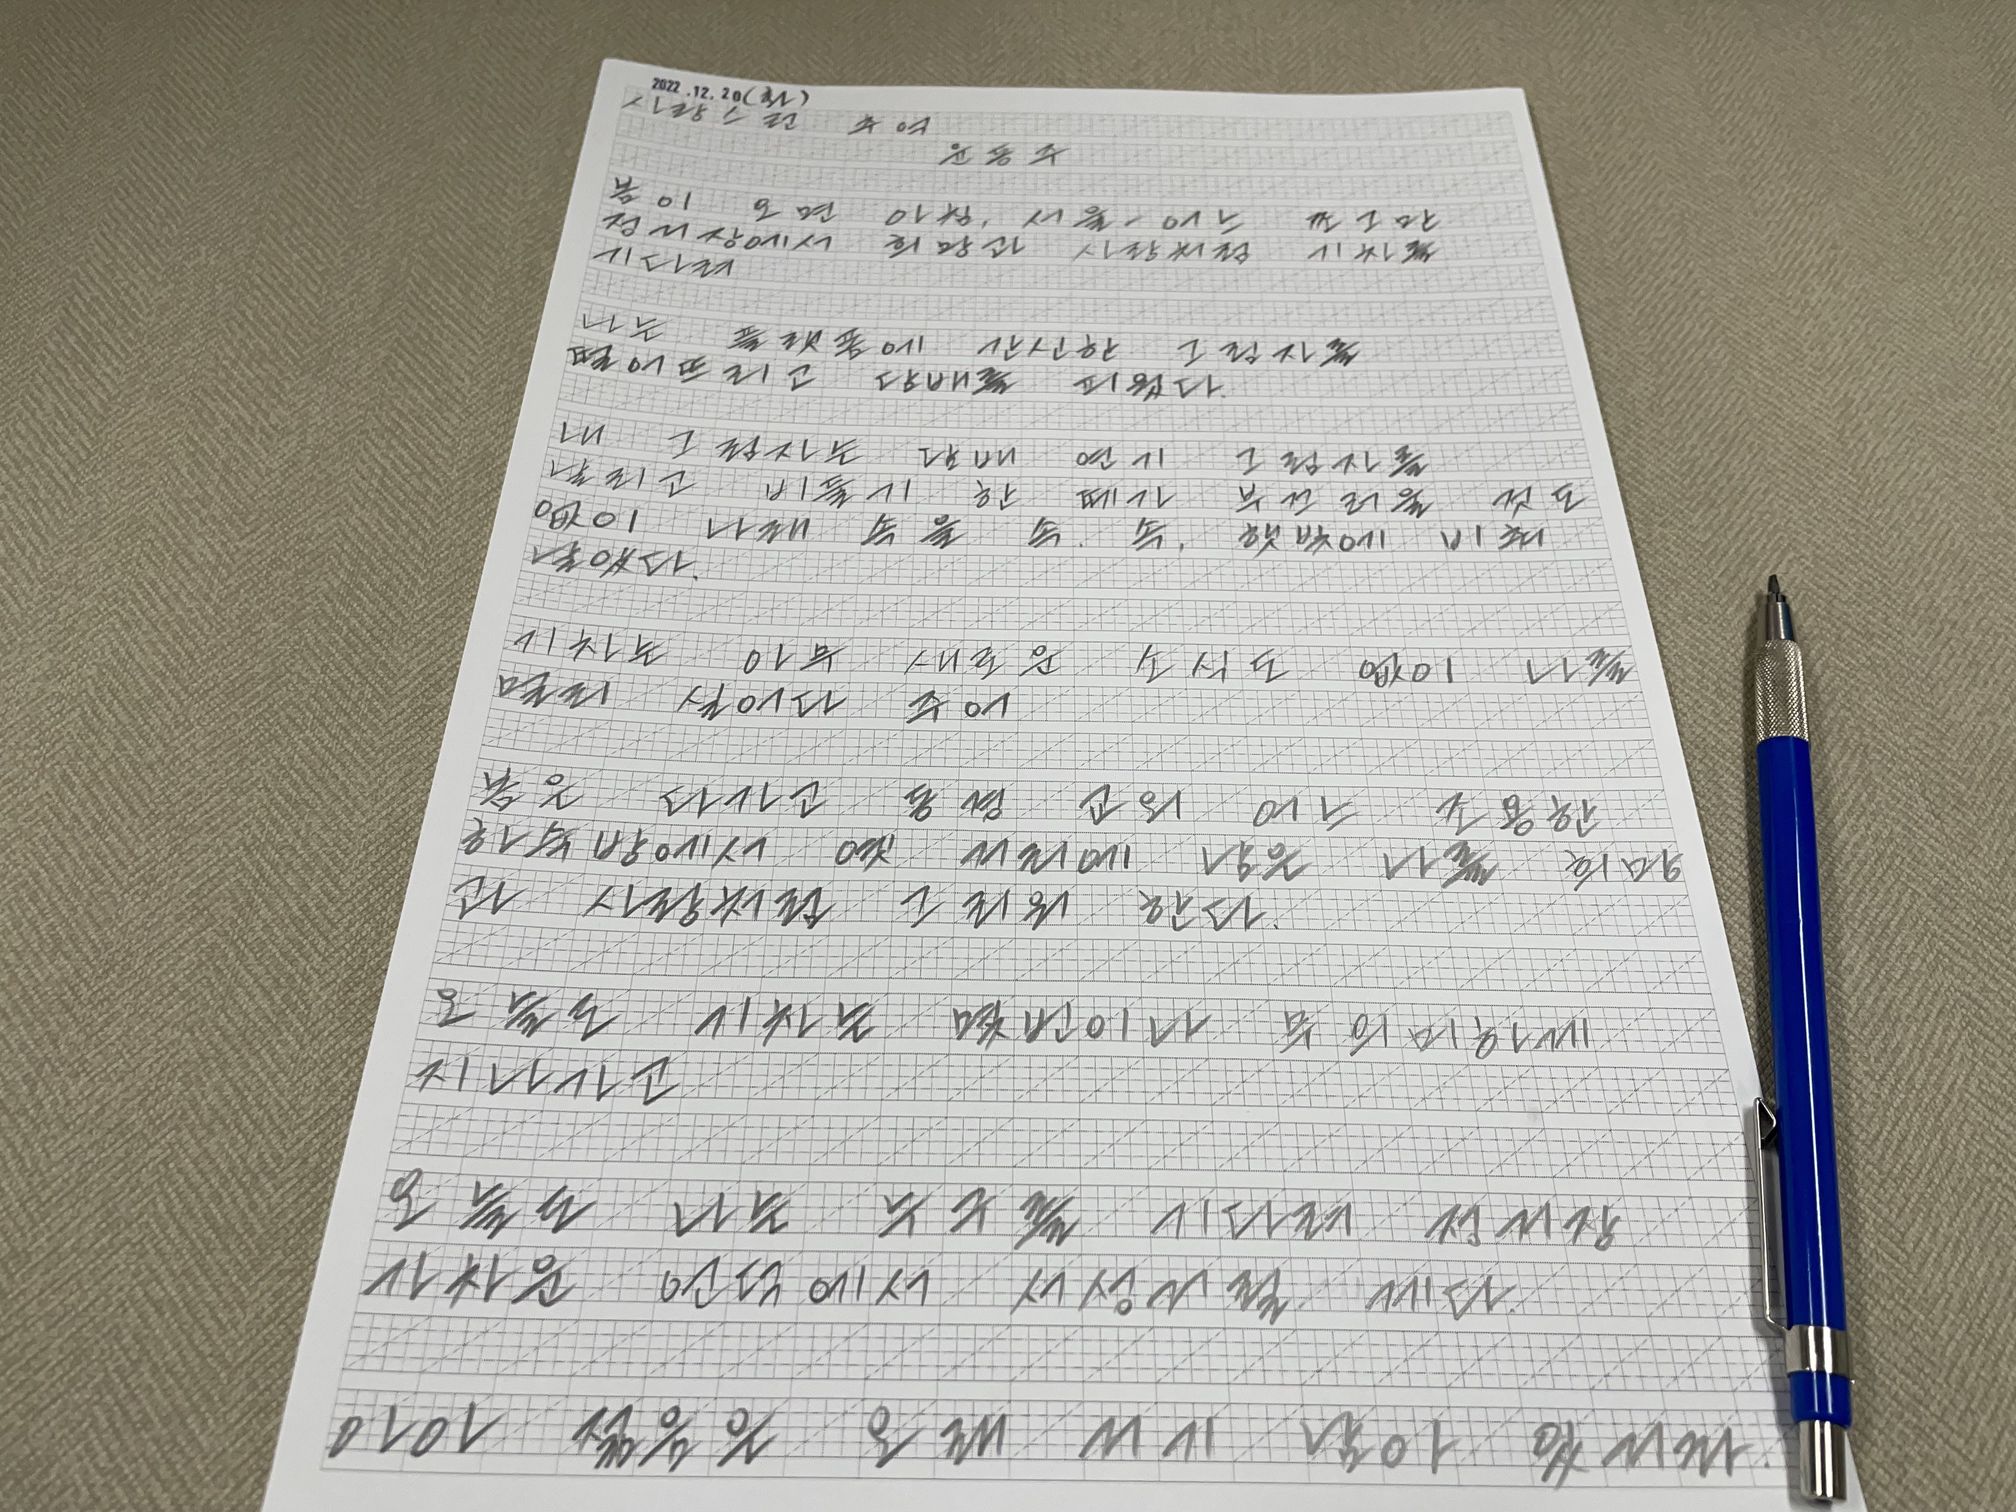 2022.12.20(화)
사랑스런 추억
윤동주
봄이 오던 아침, 서울, 어느 쪼그만
정거장에서 희망과 사랑처럼 기차를
기다려
나는 플랫폼에 간신한 그림자를
떨어뜨리고 담배를 피웠다.
내 그림자는 담배 연기 그림자를
날리고 비둘기 한 떼가 부끄러울 것도
없이 나래 속을 속, 속, 햇빛에 비춰
날았다.
기차는 아무 새로운 소식도 없이 나를
멀리 실어다 주어
봄은 다가고 동경 교외 어느 조용한
하숙방에서 옛 거리에 남은 나를 희망
과 사랑처럼 그리워 한다.
오늘도 기차는 몇번이나 무의미하게
지나가고
오늘도 나는 누구를 기다려 정거장
가차운 언덕에서 서성거릴 게다.
아아 젊음은 오래 거기 남아 있거라.